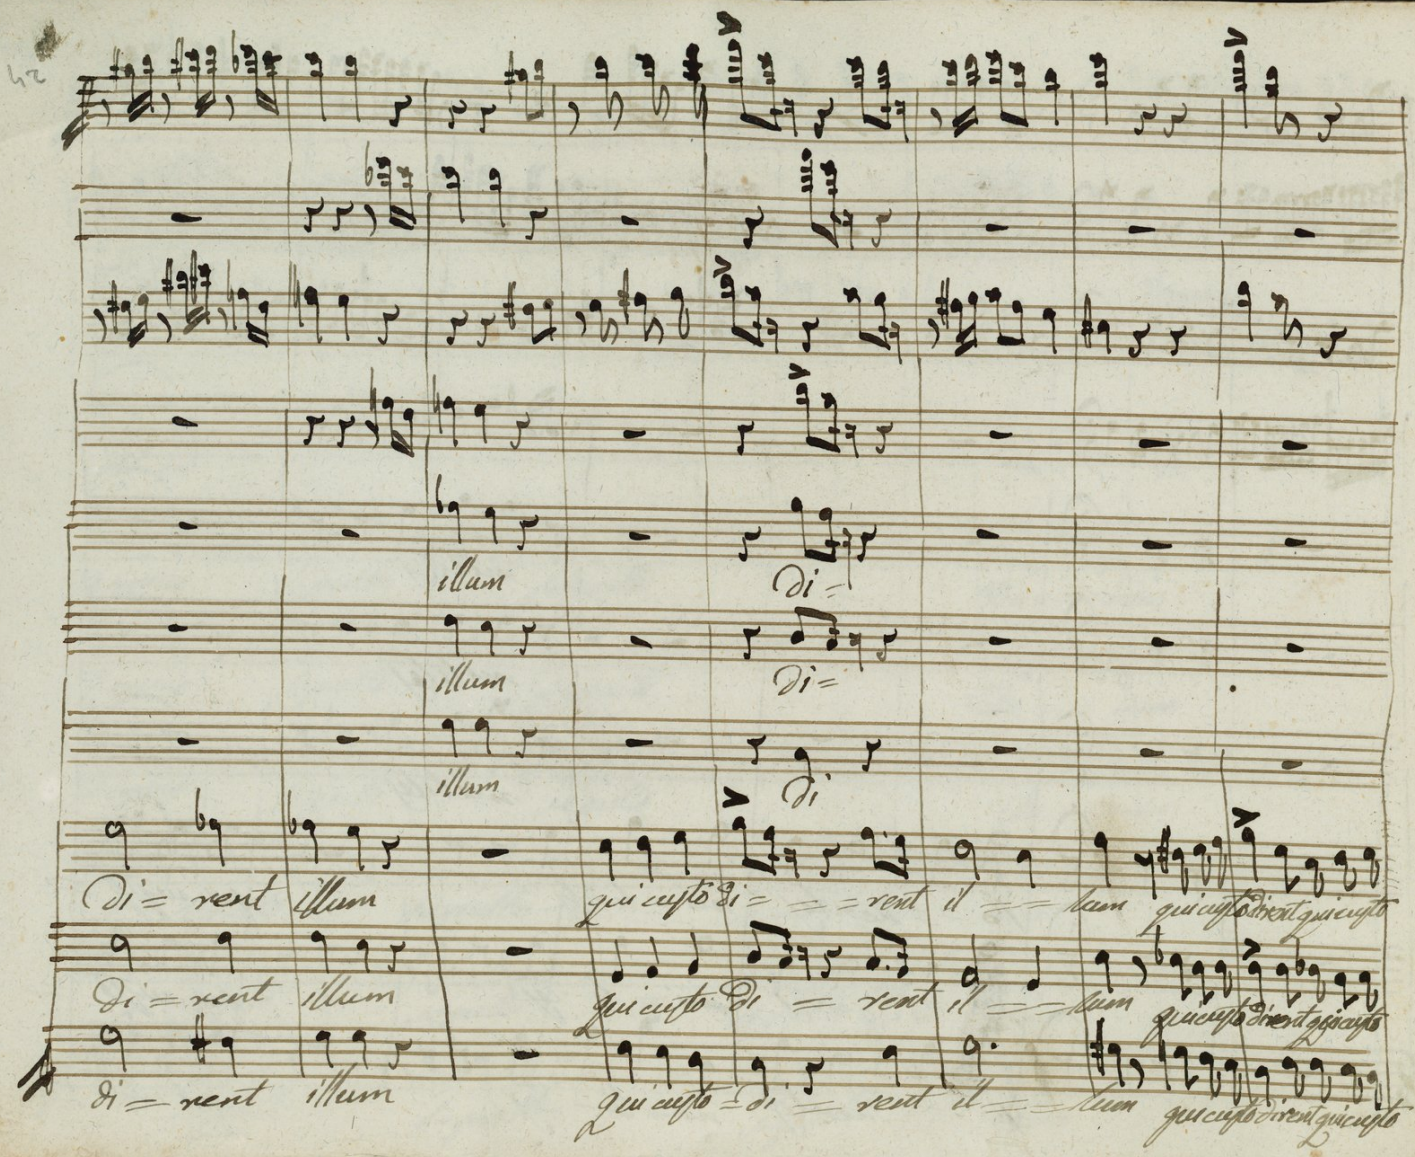 42
illum di=
illum di=
illum di
di= rent illum qui custo di= = = rent il = = lum qui custo dirent qui custo
di = rent illum qui custo di = rent il = = lum qui custo dirent qui custo
di = rent illum qui custo = di = rent il = = lum qui custo dirent qui custo